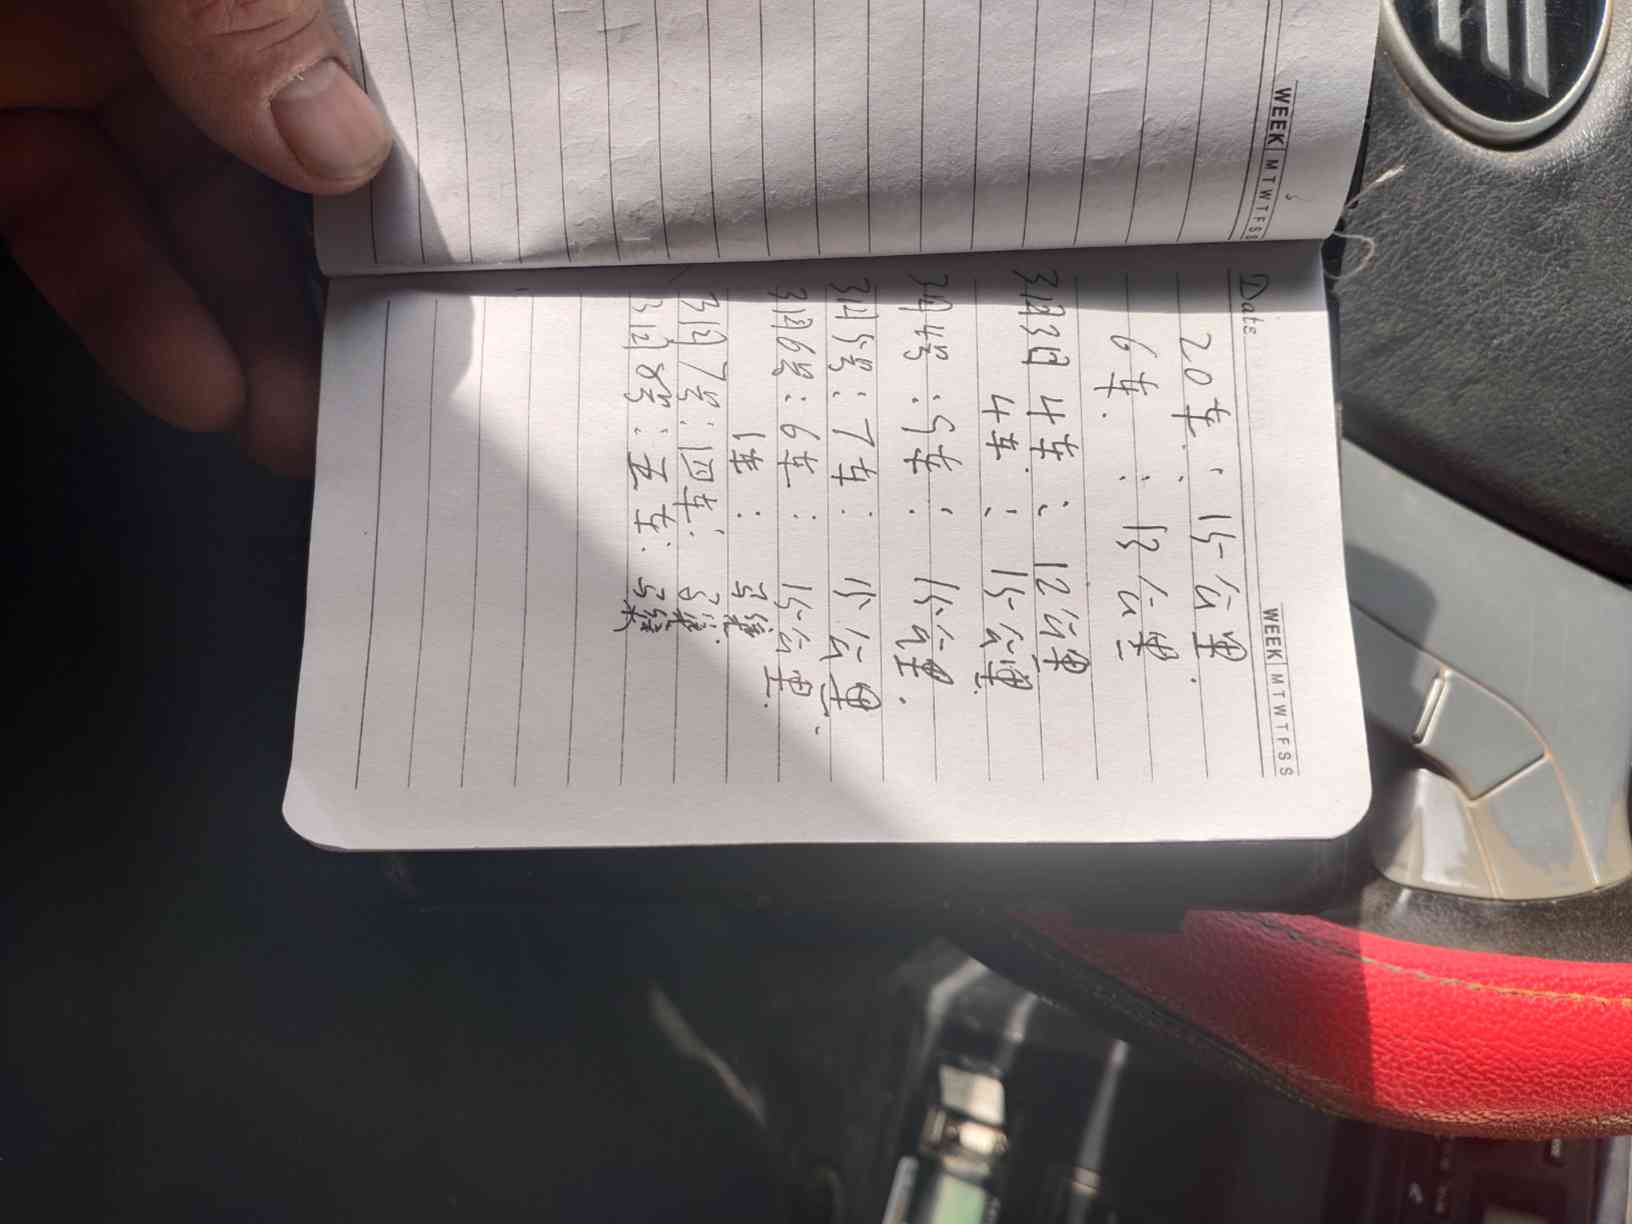 WEEK M T W T F S S
Date
WEEK M T W T F S S
20车: 15公里.
6车. : 13公里
3月3日 4车: 12公里
4车: 15公里.
3月4号: 5车: 15公里.
3月5号: 7车: 15公里.
3月6号: 6车: 15公里.
1车: 3线
3月7号: 四车: 3线.
3月8号: 五车: 3线